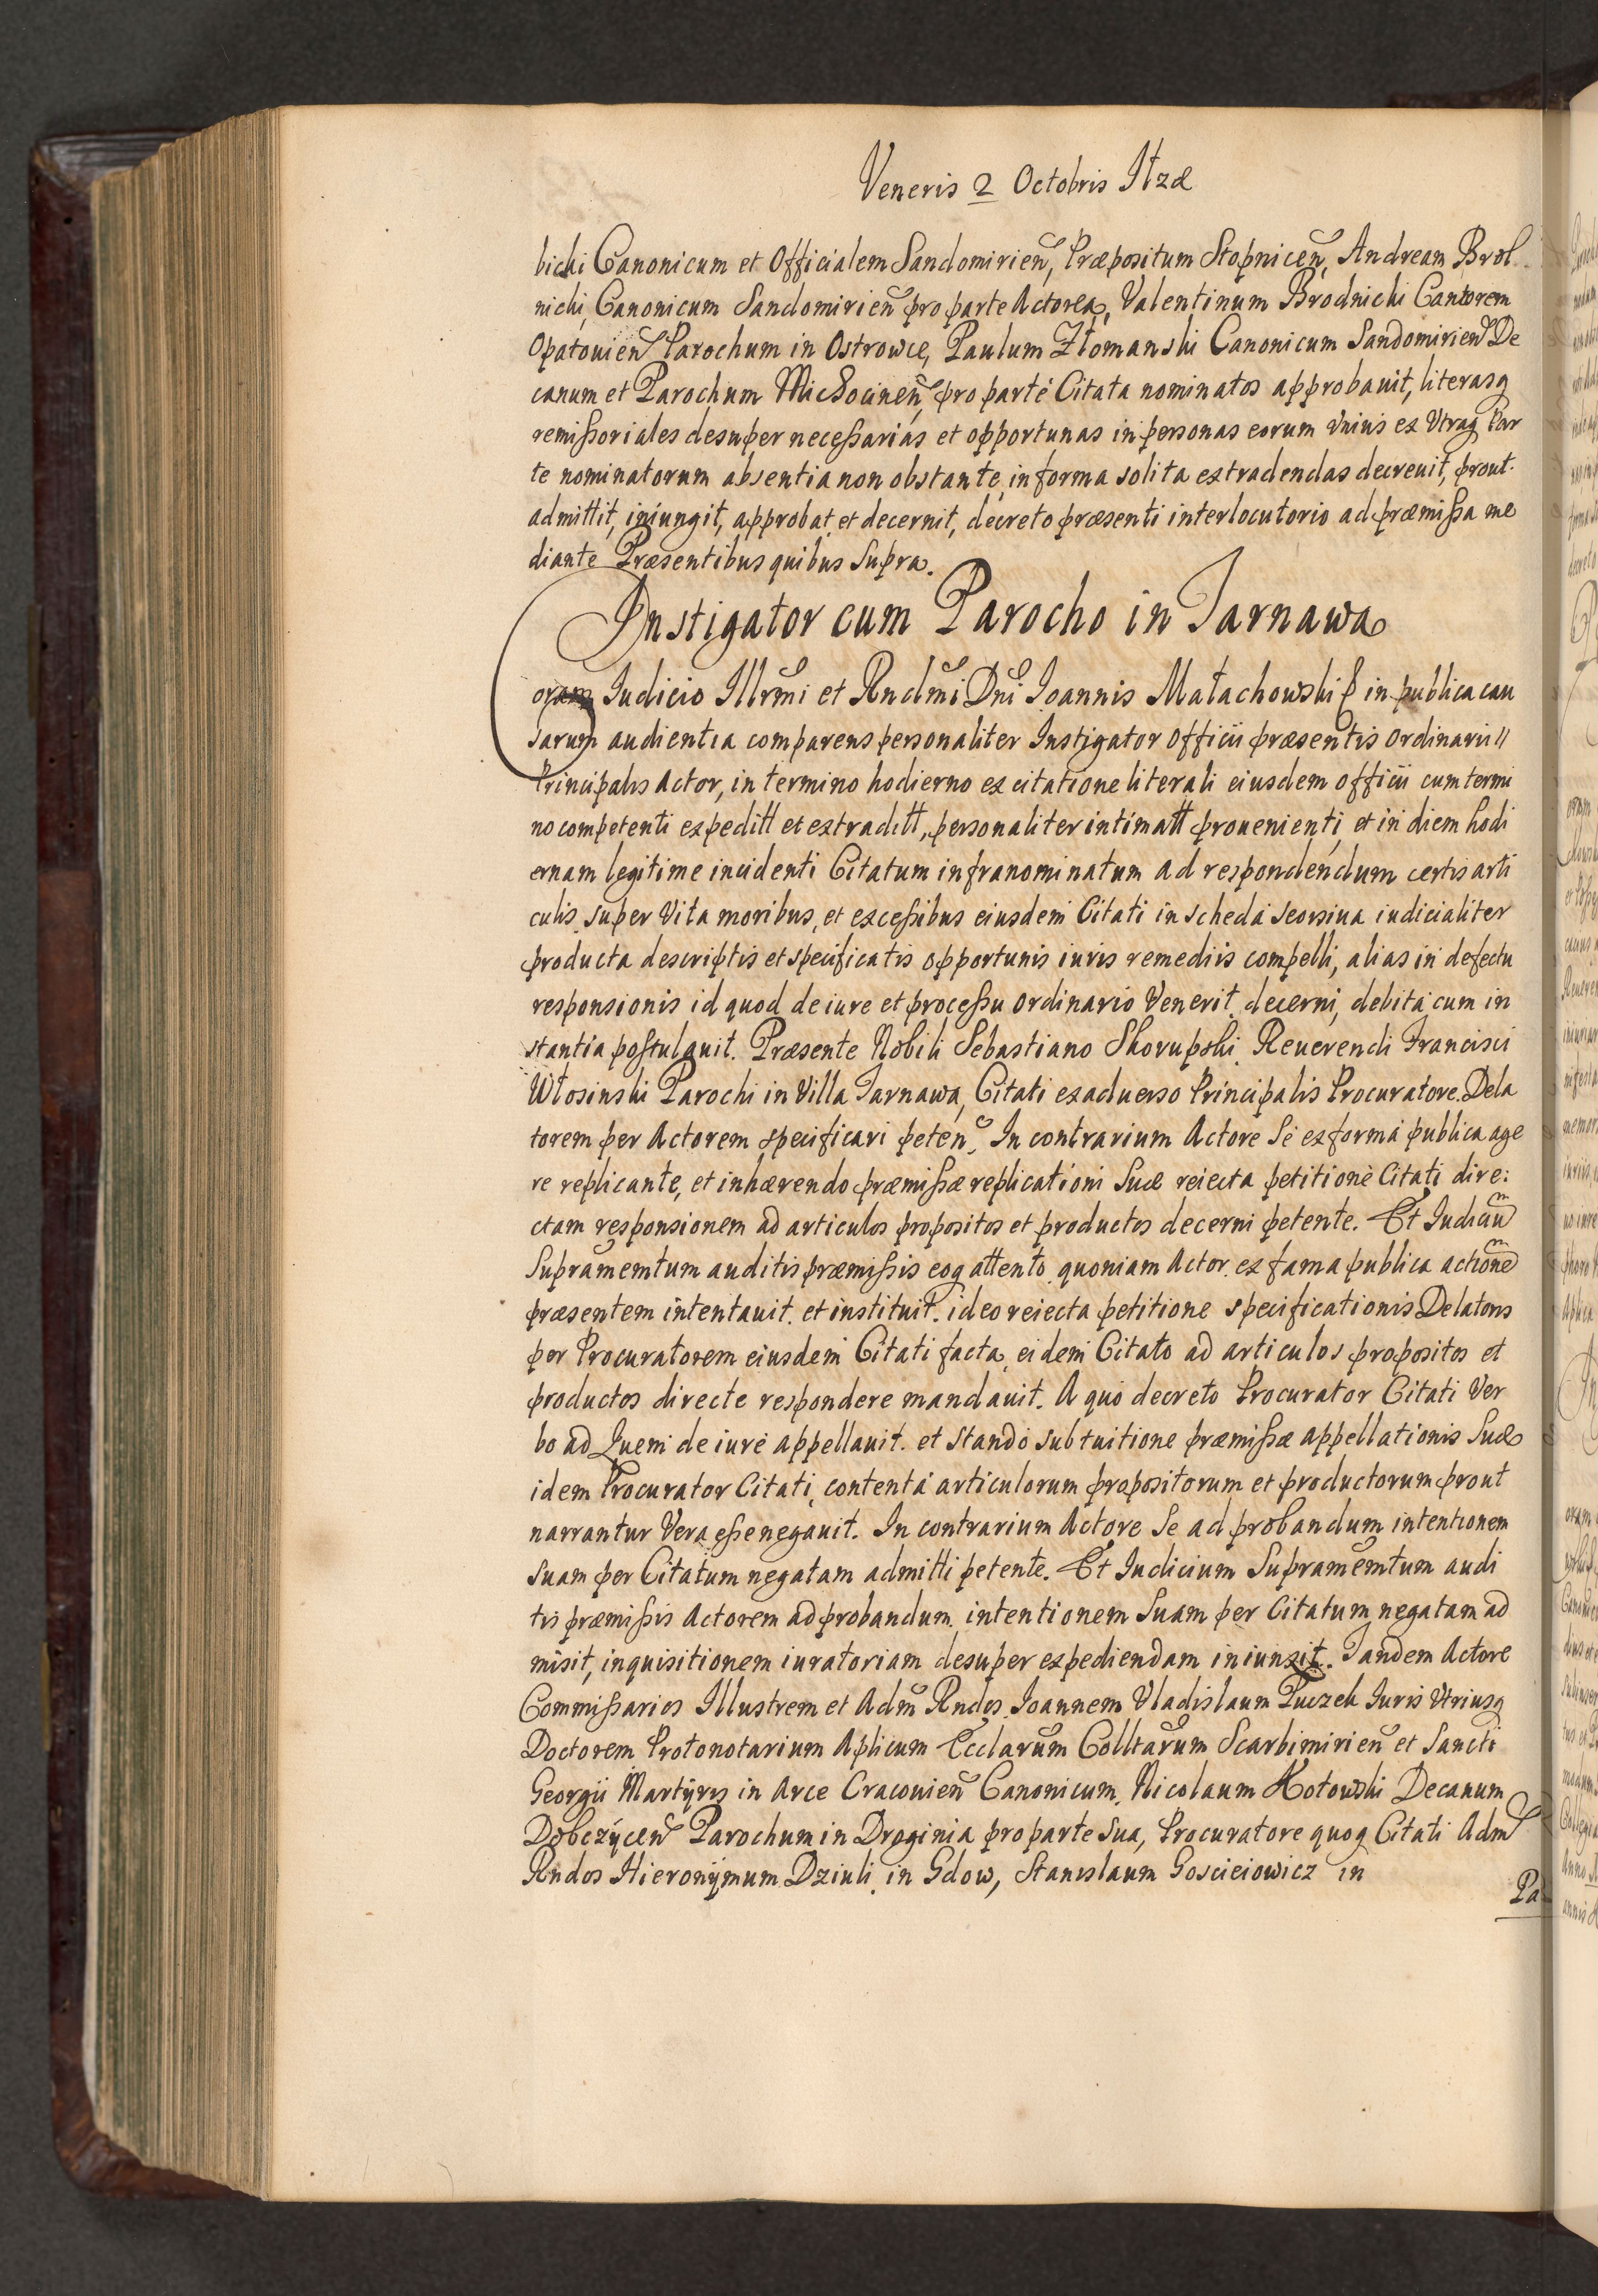 Veneris 2 Octobris
bicki Canonicum et Officialem Sandomirien̄, Præpositum Stopnicen̄, Andream
nicki, Canonicum Sandomirien̄ pro parte Actorea, Valentinum Brodnicki Cantorem
Opatouien̄ Parochum in Ostrowce, Paulum Złomanski Canonicum Sandomirien̄ De
canum et Parochum pro parte Citata nominatos approbauit, literasq
remißoriales desuper neceßarias et opportunas in personas eorum vnius ex Vtraq Par
te nominatorum absentia non obstante, in forma solita extradendas decreuit, prout
admittit, iniungit, approbat et decernit, decreto præsenti interlocutorio ad præmißa me
diante Præsentibus quibus Supra.
Instigator cum Parocho in Tarnawa
Coram Iudicio Illrm̄i et Rndm̄i Dn̄i Ioannis Małachowski in publica cau
sarum audientia comparens personaliter Instigator Officii præsentis Ordinarii
Principalis Actor, in termino hodierno ex citatione literali eiusdem officii cum termi
no competenti expeditt et extraditt, personaliter intimatt prouenienti, et in diem hodi
ernam legitime incidenti Citatum infranominatum ad respondendum certis arti
culis super Vita moribus, et exceßibus eiusdem Citati in scheda seorsiua iudicialiter
producta descriptis et specificatis opportunis iuris remediis compelli, alias in defectu
responsionis id quod de iure et proceßu ordinario Venerit decerni, debita cum in
stantia postulauit. Præsente Nobili Sebastiano Skorupski Reuerendi Francisci
Włosinski Parochi in Villa Tarnawa, Citati ex aduerso Principalis Procuratore. Dela
torem per Actorem specificari peten̄. In contrarium Actore Se ex forma publica age
re replicante, et inhærendo præmißæ replicationi Suæ reiecta petitione Citati dire:
ctam responsionem ad articulos propositos et productos decerni petente. Et Iudiciu͂m
Supramem̄tum auditis præmißis eoq attento quoniam Actor ex fama publica actione͂m
præsentem intentauit et instituit. ideo reiecta petitione specificationis Delatoris
per Procuratorem eiusdem Citati facta, eidem Citato ad articulos propositos et
productos directe respondere mandauit. A quo decreto Procurator Citati Ver
bo ad Quem de iure appellauit. et stando sub tuitione præmißæ appellationis Suæ
idem Procurator Citati, contenta articulorum propositorum et productorum prout
narrantur Vera eße negauit. In contrarium Actore Se ad probandum intentionem
suam per Citatum negatam admitti petente. Et Iudicium Supramem̄tum audi
tis præmißis Actorem ad probandum intentionem Suam per Citatum negatam ad
misit, inquisitionem iuratoriam desuper expediendam iniunxit. Tandem Actore
Commißarios Illustrem et Adm̄ Rndos Ioannem Vladislaum Puczek Iuris Vtriusq
Doctorem Protonotarium Aplicum Ecclaru͂m Colltaru͂m Scarbimirien̄ et Sancti
Georgii Martyris in Arce Cracouien̄ Canonicum, Nicolaum Kotowski Decanum
Dobczycen̄ Parochum in Droginia pro parte Sua, Procuratore quoq Citati Adm̄
Rndos Hieronymum Dziuli in Gdow, Stanislaum Goscieiowicz in
Pa